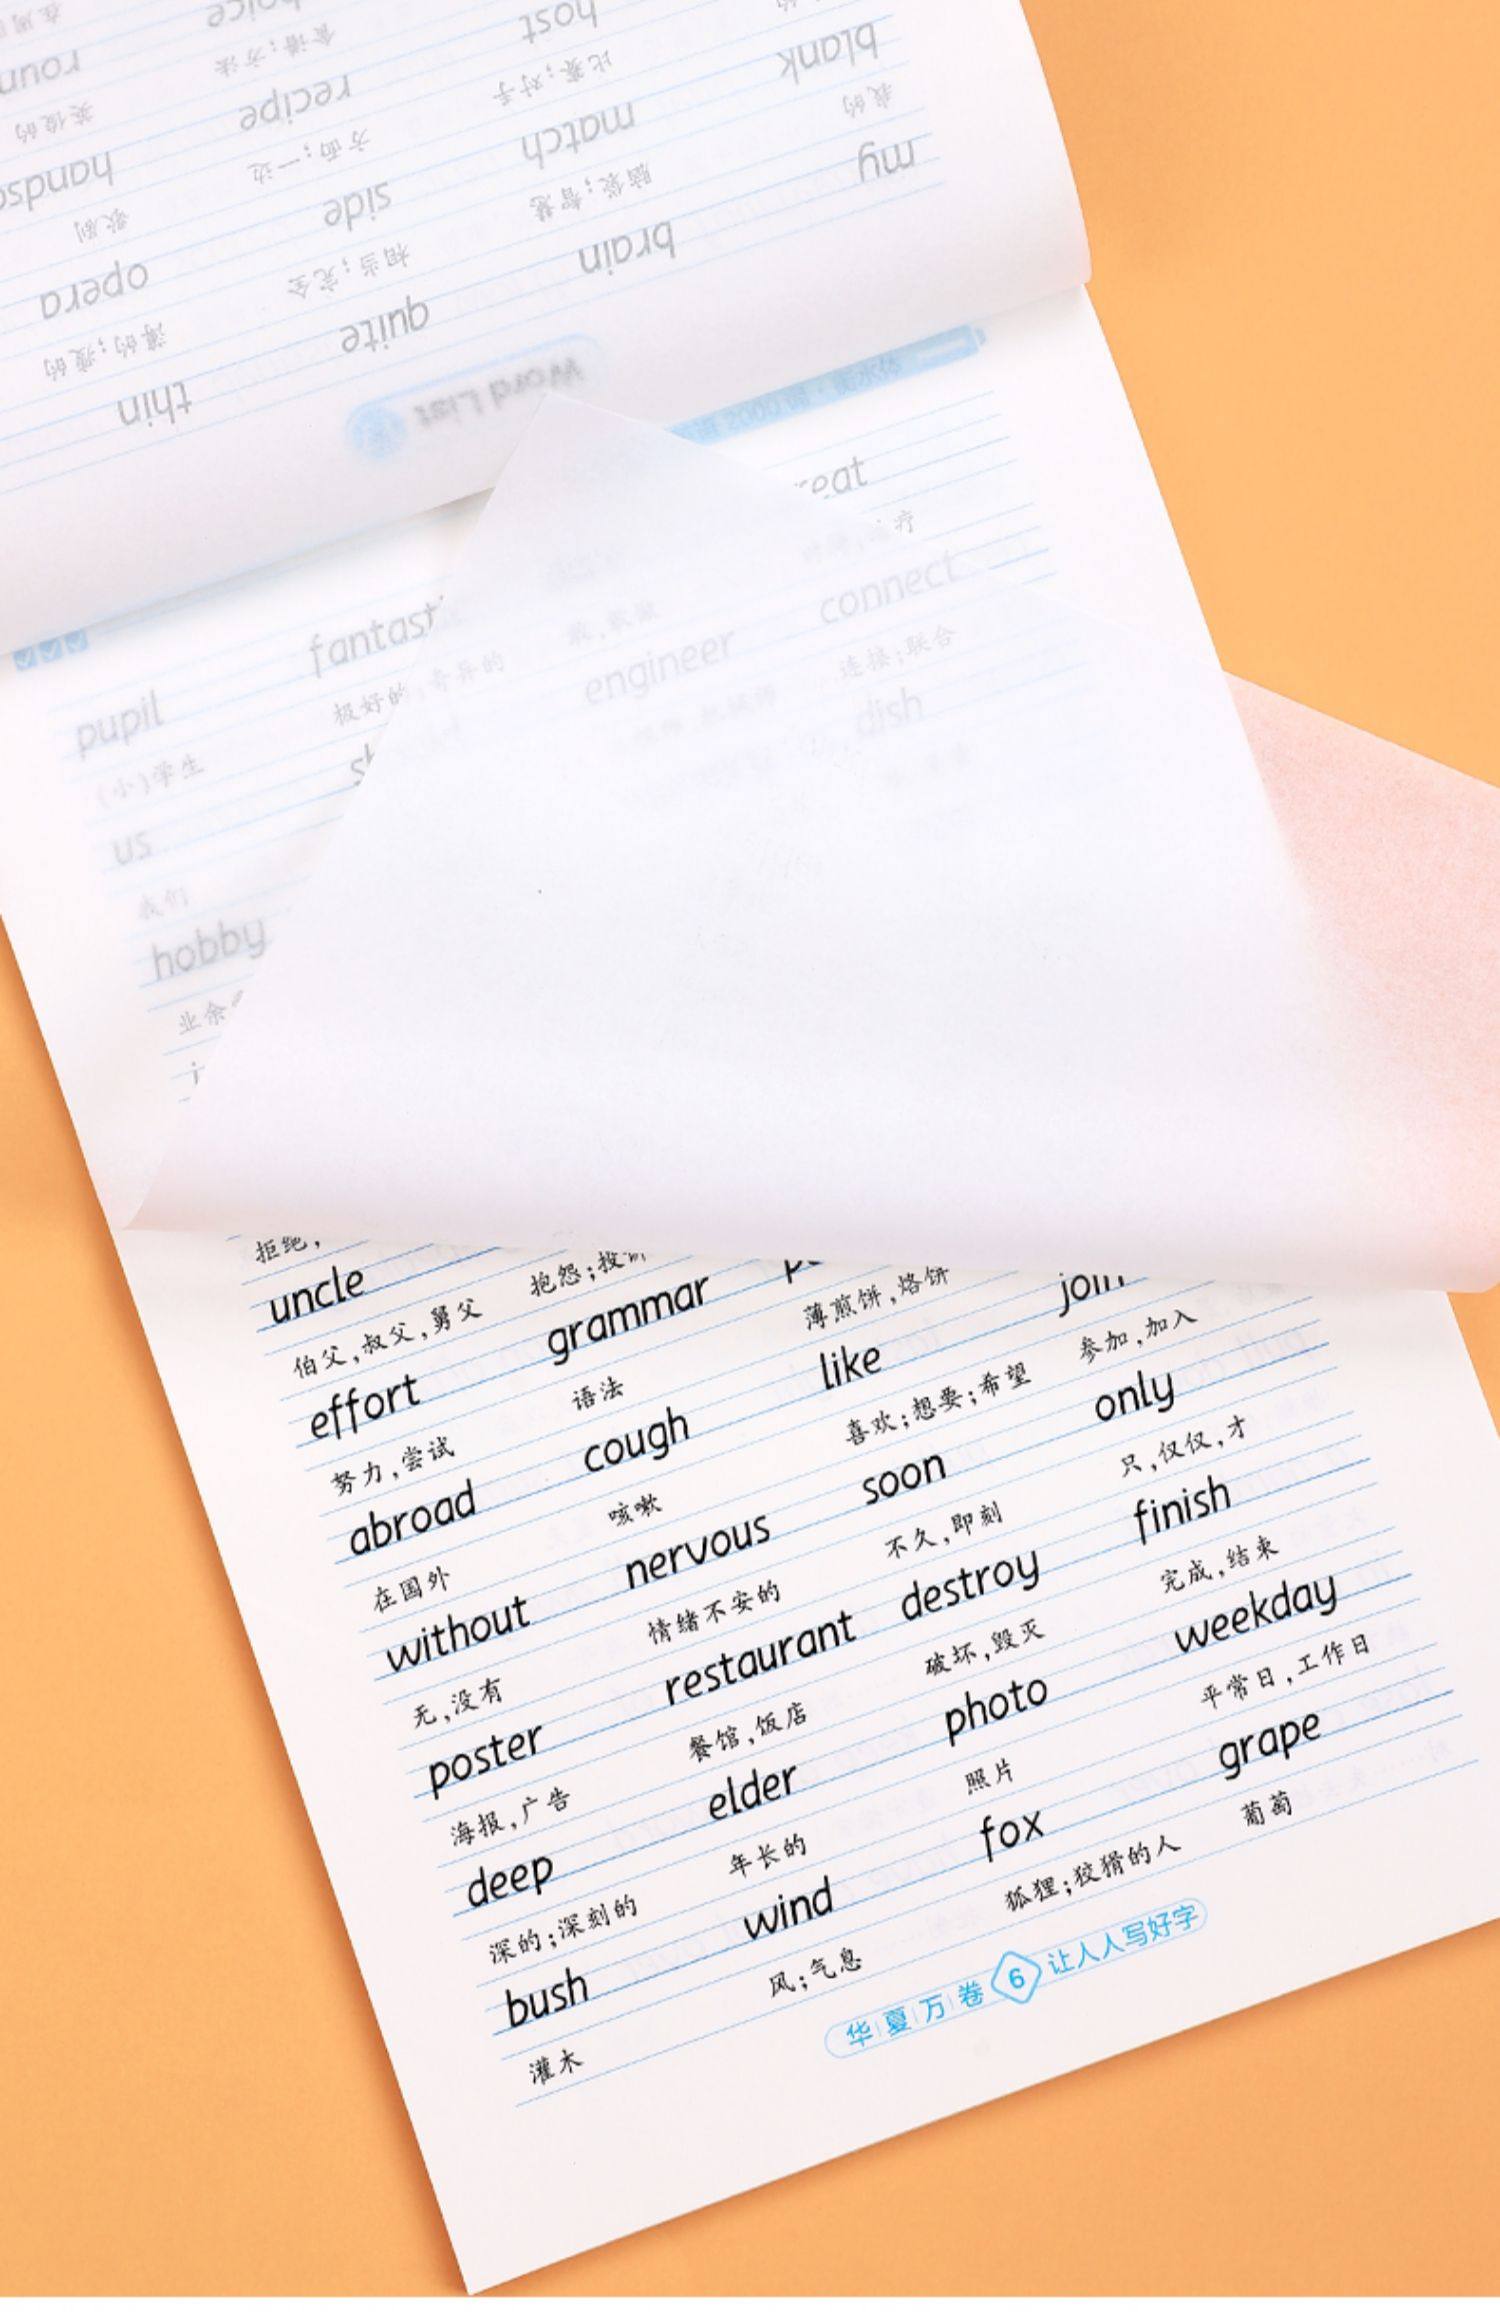 choice
host
食谱；方法
blank
roun
recipe
比赛；对手
我的
英俊的
match
my
handso
方面；一边
脑袋；智慧
歌剧
side
brain
opera
相当；完全
薄的；瘦的
quite
thin
Word List
eat
疗
fantast
connect
pupil
极好的；奇异的
engineer
连接；联合
(小)学生
dish
us
我们
hobby
业余
拒绝，
uncle
抱怨；投
伯父，叔父，舅父
grammar
薄煎饼，烙饼
join
effort
语法
like
参加，加入
努力，尝试
cough
喜欢；想要；希望
only
abroad
咳嗽
soon
只，仅仅，才
在国外
nervous
不久，即刻
finish
without
情绪不安的
destroy
完成，结束
无，没有
restaurant
破坏，毁灭
weekday
poster
餐馆，饭店
photo
平常日，工作日
海报，广告
elder
照片
grape
deep
年长的
fox
葡萄
深的；深刻的
wind
狐狸；狡猾的人
bush
风；气息
灌木
华夏万卷 6 让人人写好字